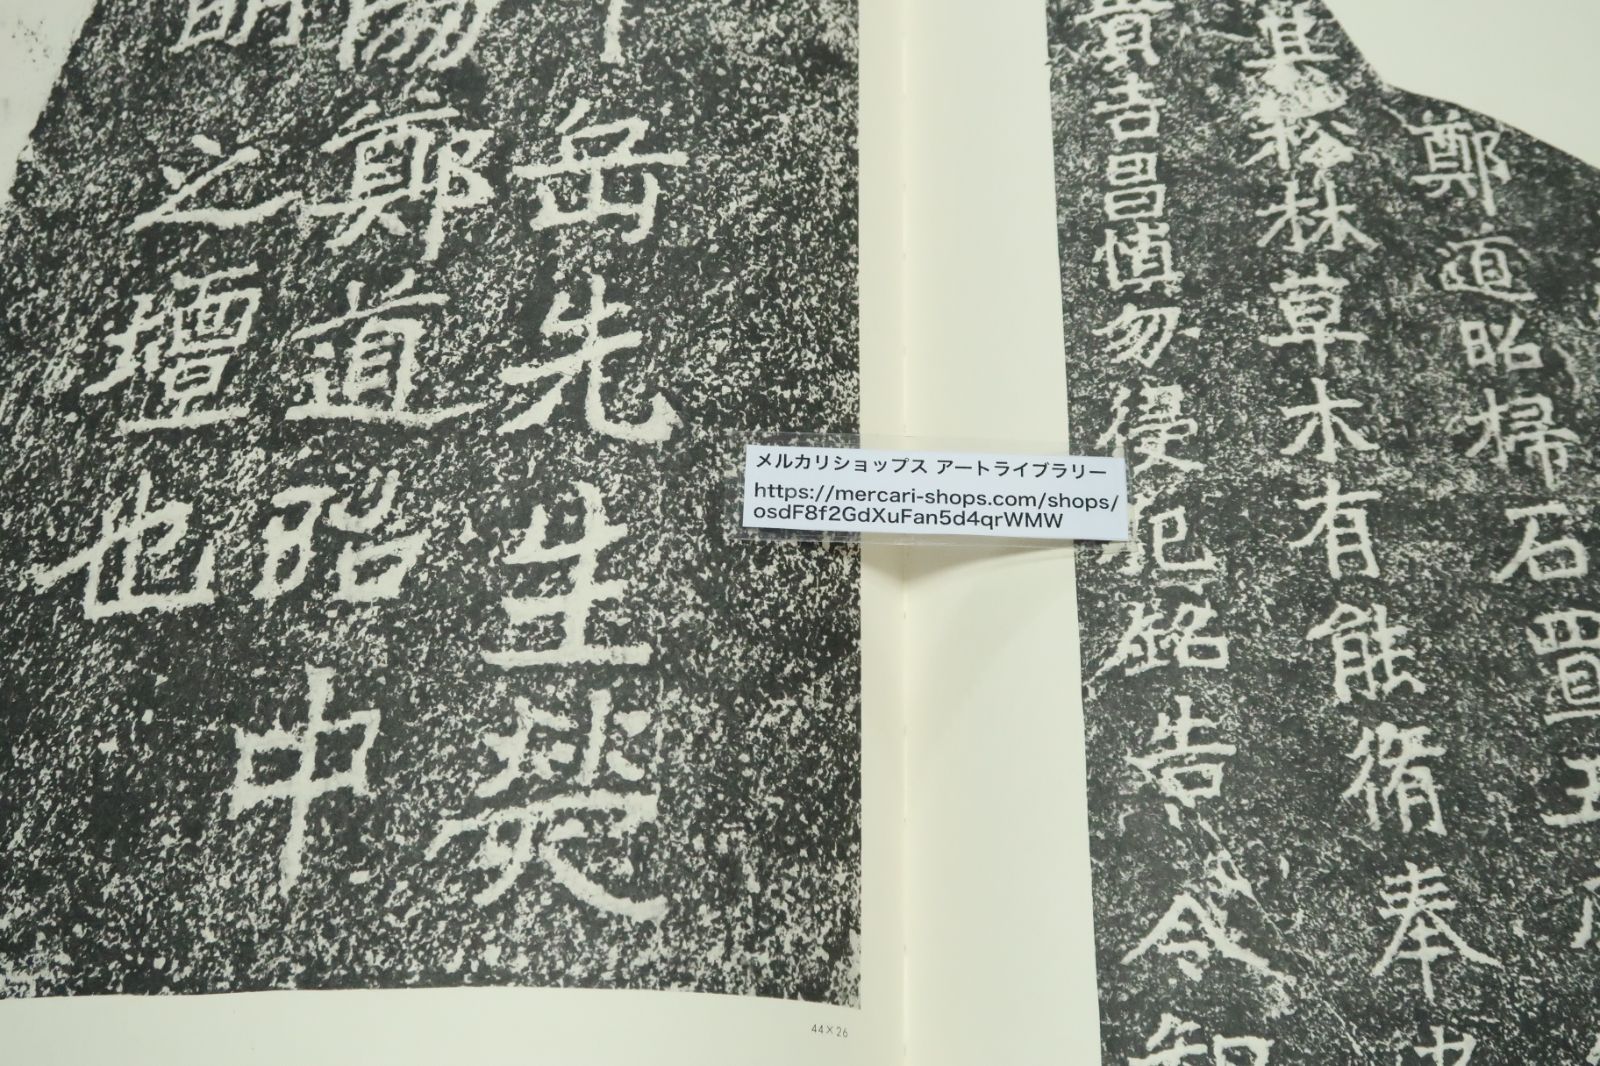 鄭道昭掃石置
其松林草木有能脩奉
貴吉昌慎勿侵犯銘告令知
岳先生熒
陽鄭道昭中
明之壇也
メルカリショップス アートライブラリー
https://mercari-shops.com/shops/
osdF8f2GdXuFan5d4qrWMW
44×26